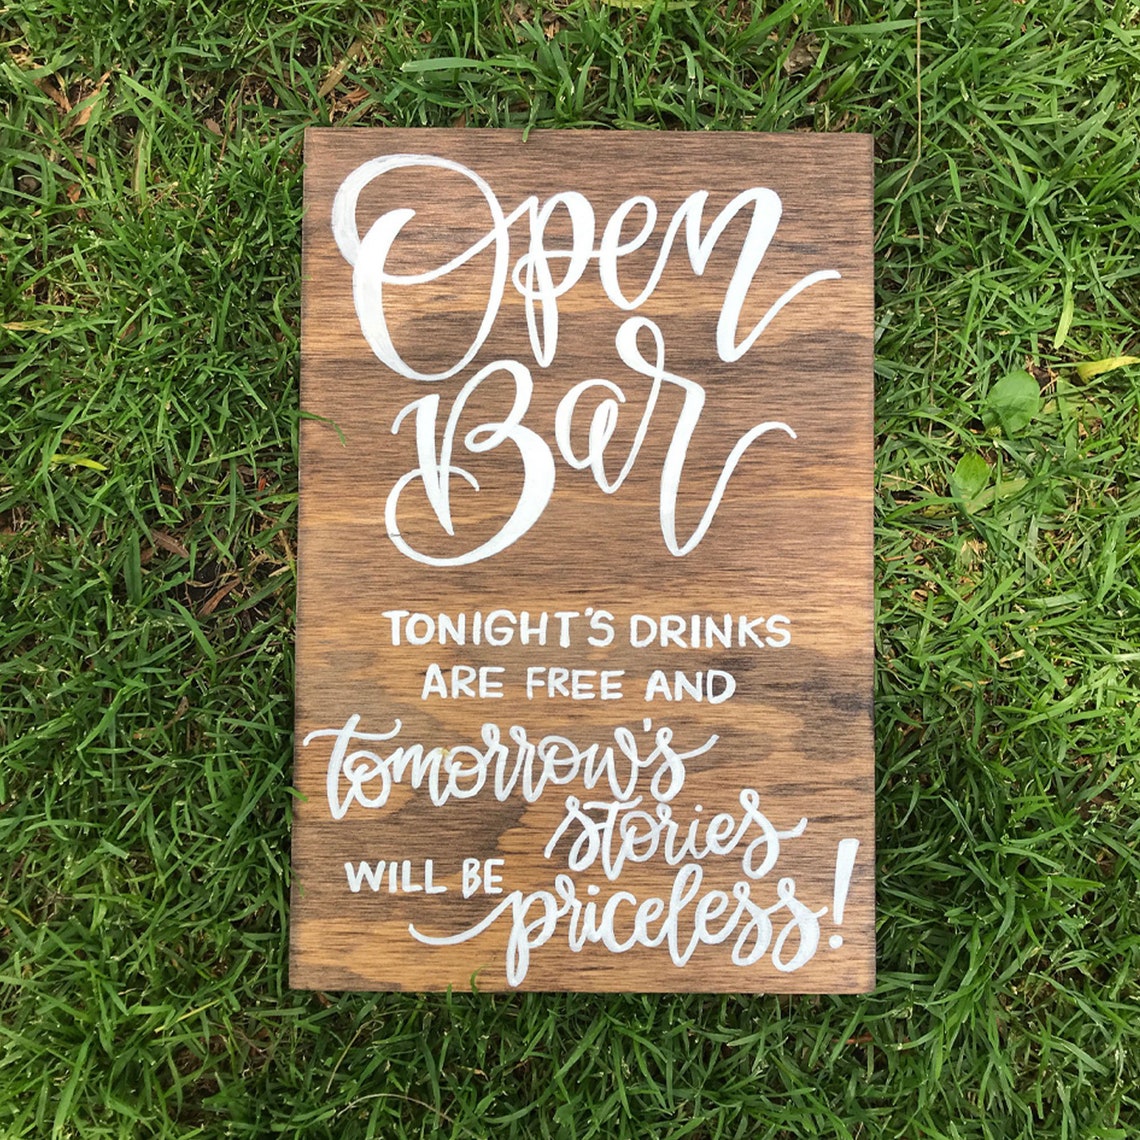 Open
Bar
TONIGHT'S DRINKS
ARE FREE AND
tomorrow's
stories
WILL BE priceless!